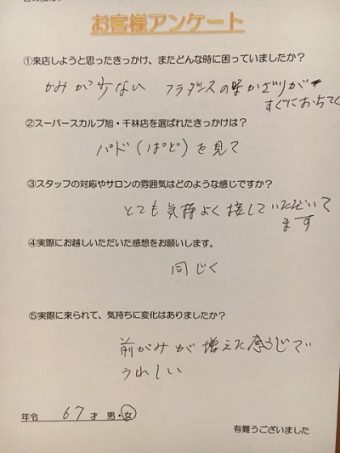 お客様アンケート
①来店しようと思ったきっかけ、またどんな時に困っていましたか?
かみが少ない フラダンスの時かざりが
すぐにおちてく
②スーパースカルプ旭・千林店を選ばれたきっかけは?
パド(ぱど)を見て
③スタッフの対応やサロンの雰囲気はどのような感じですか?
とても気持よく接していただいて
ます
④実際にお越しいただいた感想をお願いします。
同じく
⑤実際に来られて、気持ちに変化はありましたか?
前がみが増えた感うじで
うれしい
年令 67才 男・女
有難うございました